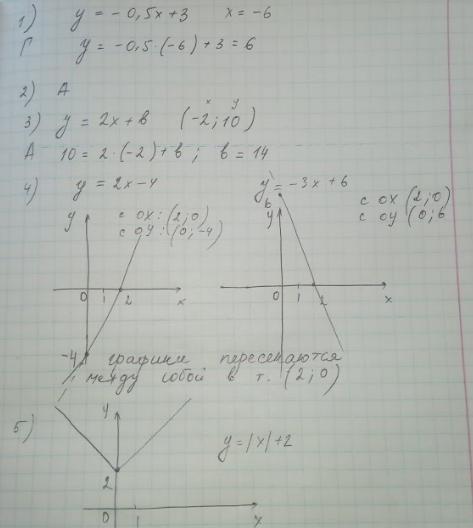 1) y = -0,5x+3 x = -6
Г y = -0,5·(-6)+3 = 6
2) А
3) y = 2x + в (-2; 10)
x y
А 10 = 2·(-2)+в; в = 14
4) y = 2x-4 y = -3x + 6
с ox: (2;0)
с oy: (0;-4)
y
0 1 2 x
-4
с ox (2;0)
с oy (0;6
6
y
0 1 2 x
графики пересекаются
между собой в т. (2;0)
5) y
y = |x|+2
2
0 1 x